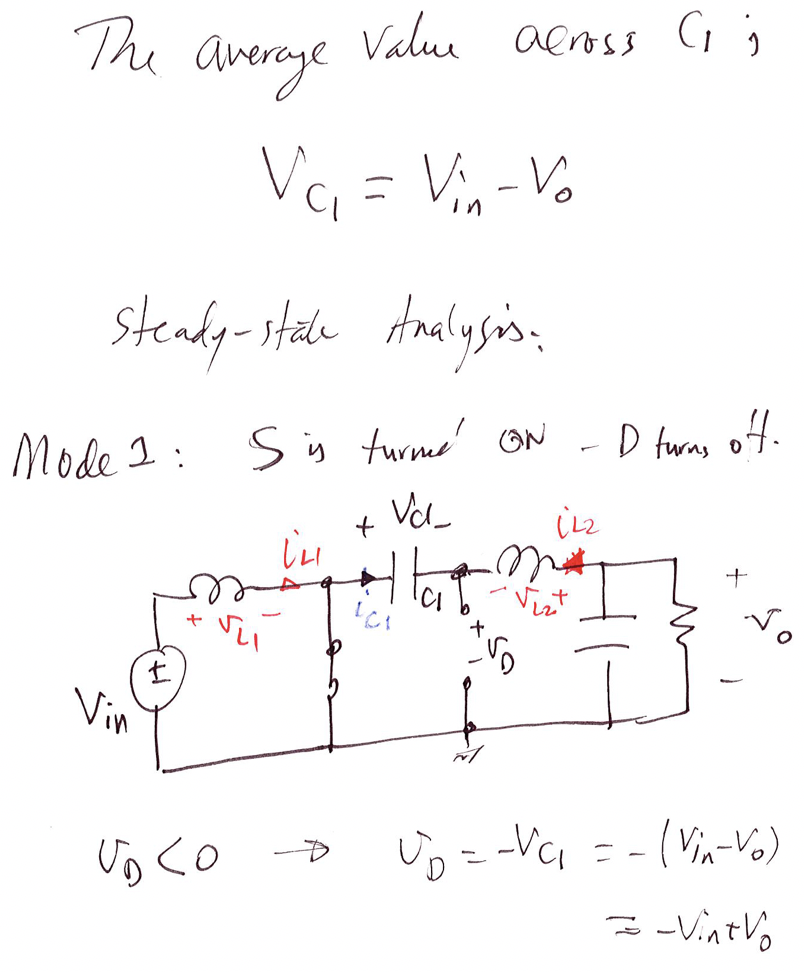 The average value across C1 is
VC1 = Vin - Vo
Steady-state Analysis.
Mode 1: S is turned ON - D turns off.
+ VC1 -
iL2
iL1
C1
+ vL1 -
iC1
- vL2 +
+
vo
-
+
- vD
±
Vin
vD < 0 → vD = -VC1 = -(Vin-Vo)
= -Vin+Vo